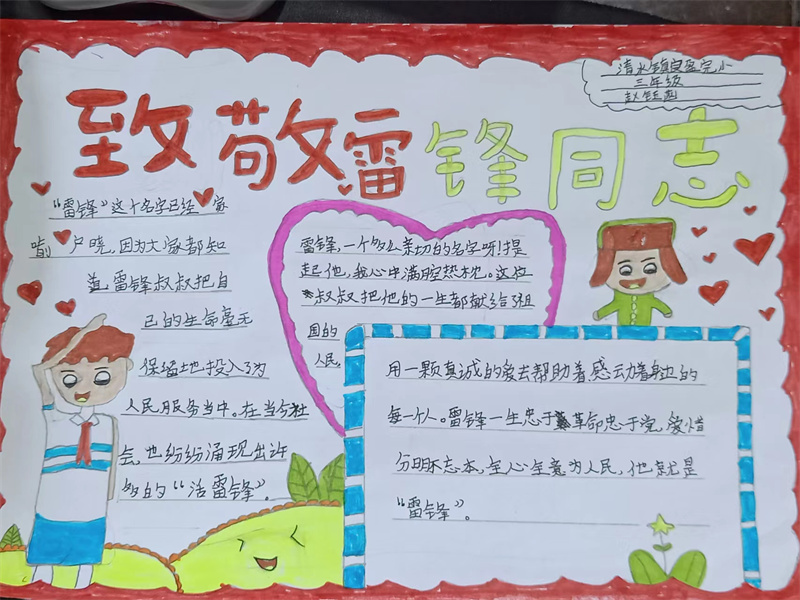 致敬雷锋同志
清水镇良盈完小
三年级
“雷锋”这个名字已经家
喻户晓,因为大家都知
道,雷锋叔叔把自
己的生命毫无
保留地投入了为
人民服务当中。在当今社
会,也纷纷涌现出许
多的“活雷锋”。
雷锋,一个多么亲切的名字呀!提
起他,我心中满腔热忱。这位
叔叔把他的一生都献给了祖
国的
人民。
用一颗真诚的爱去帮助着感动着身边的
每一个人。雷锋一生忠于革命忠于党,爱憎
分明不忘本,全心全意为人民,他就是
“雷锋”。